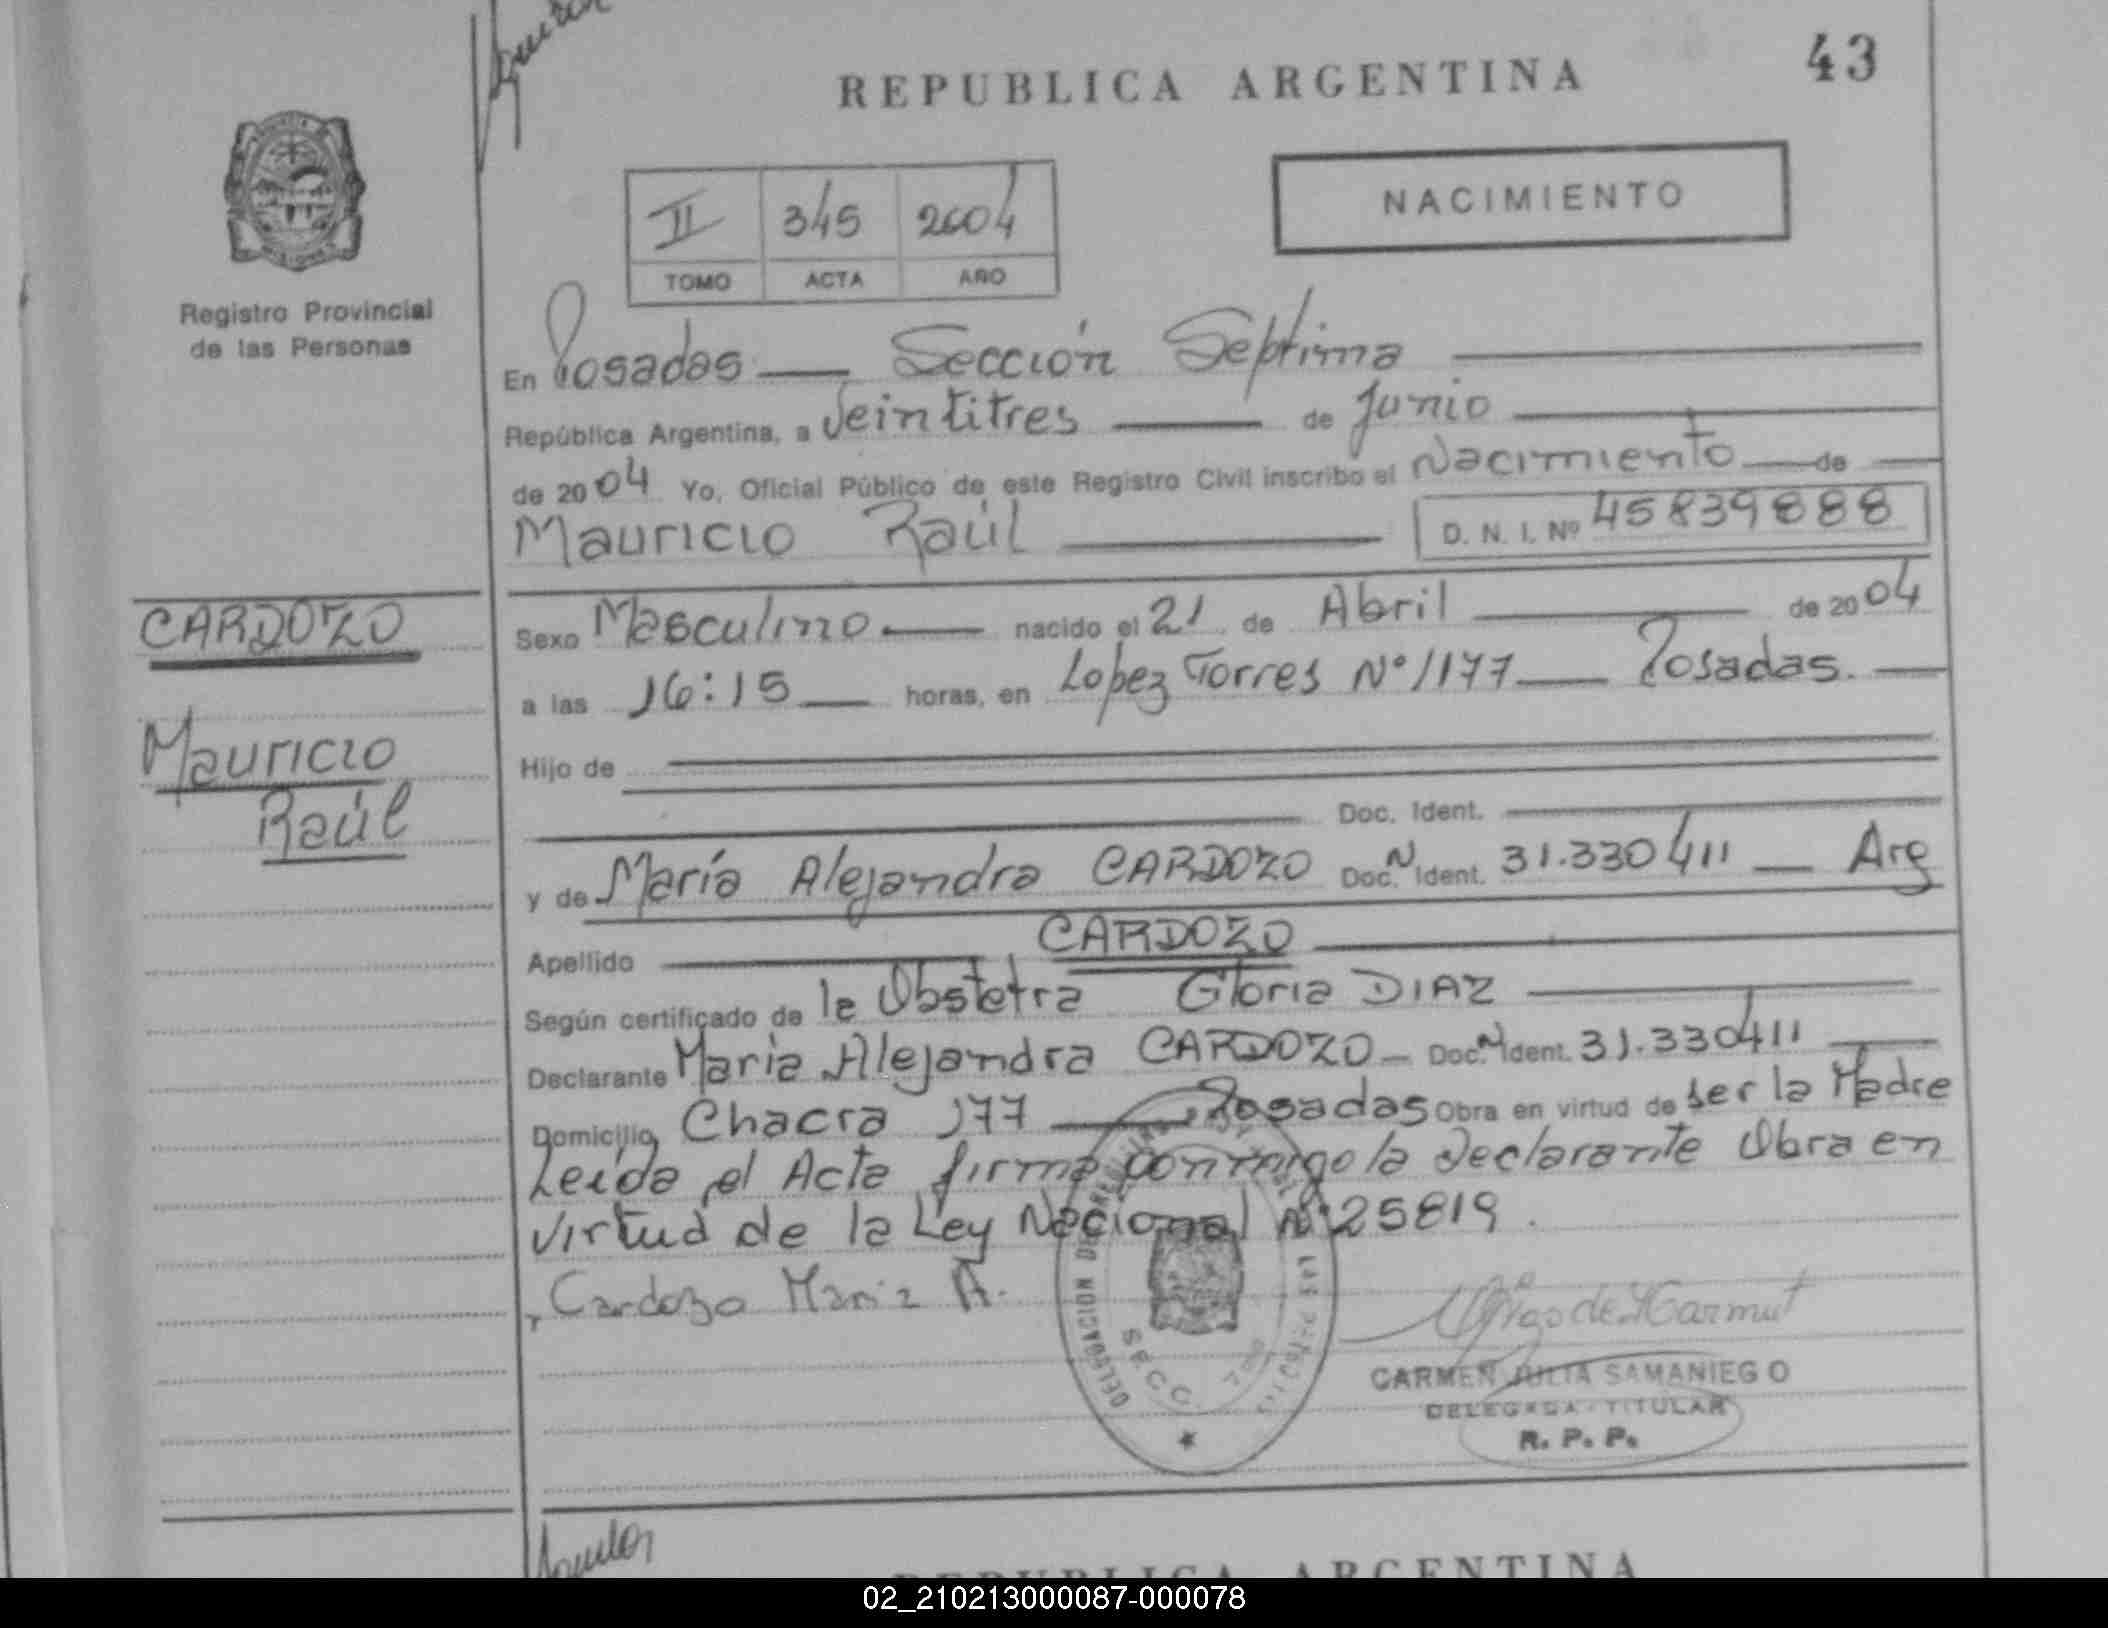 REPUBLICA ARGENTINA
43
NACIMIENTO
II 345 2004
TOMO ACTA AÑO
Registro Provincial
de las Personas
En Posadas — Sección Septima
República Argentina, a Veintitres — de Junio
de 2004 Yo, Oficial Público de este Registro Civil inscribo el Nacimiento — de
Mauricio Raúl
D. N. I. Nº 45839888
CARDOZO
Mauricio
Raúl
Sexo Masculino — nacido el 21 de Abril — de 2004
a las 16:15 — horas, en Lopez Torres Nº 1177 — Posadas.
Hijo de
Doc. Ident.
y de María Alejandra CARDOZO Doc. N Ident. 31.330411 — Arg
Apellido CARDOZO
Según certificado de la Obstetra Gloria DIAZ
Declarante Maria Alejandra CARDOZO — Doc. N Ident. 31.330411
Domicilio Chacra 177 — Posadas Obra en virtud de ser la Madre
Leida el Acta firma conmigo la Declarante Obra en
virtud de la Ley Nacional Nº 25819.
Cardozo Maria A.
DELEGACION
SECC.
CARMEN JULIA SAMANIEGO
DELEGADA TITULAR
R. P. P.
REPUBLICA ARGENTINA
02_210213000087-000078